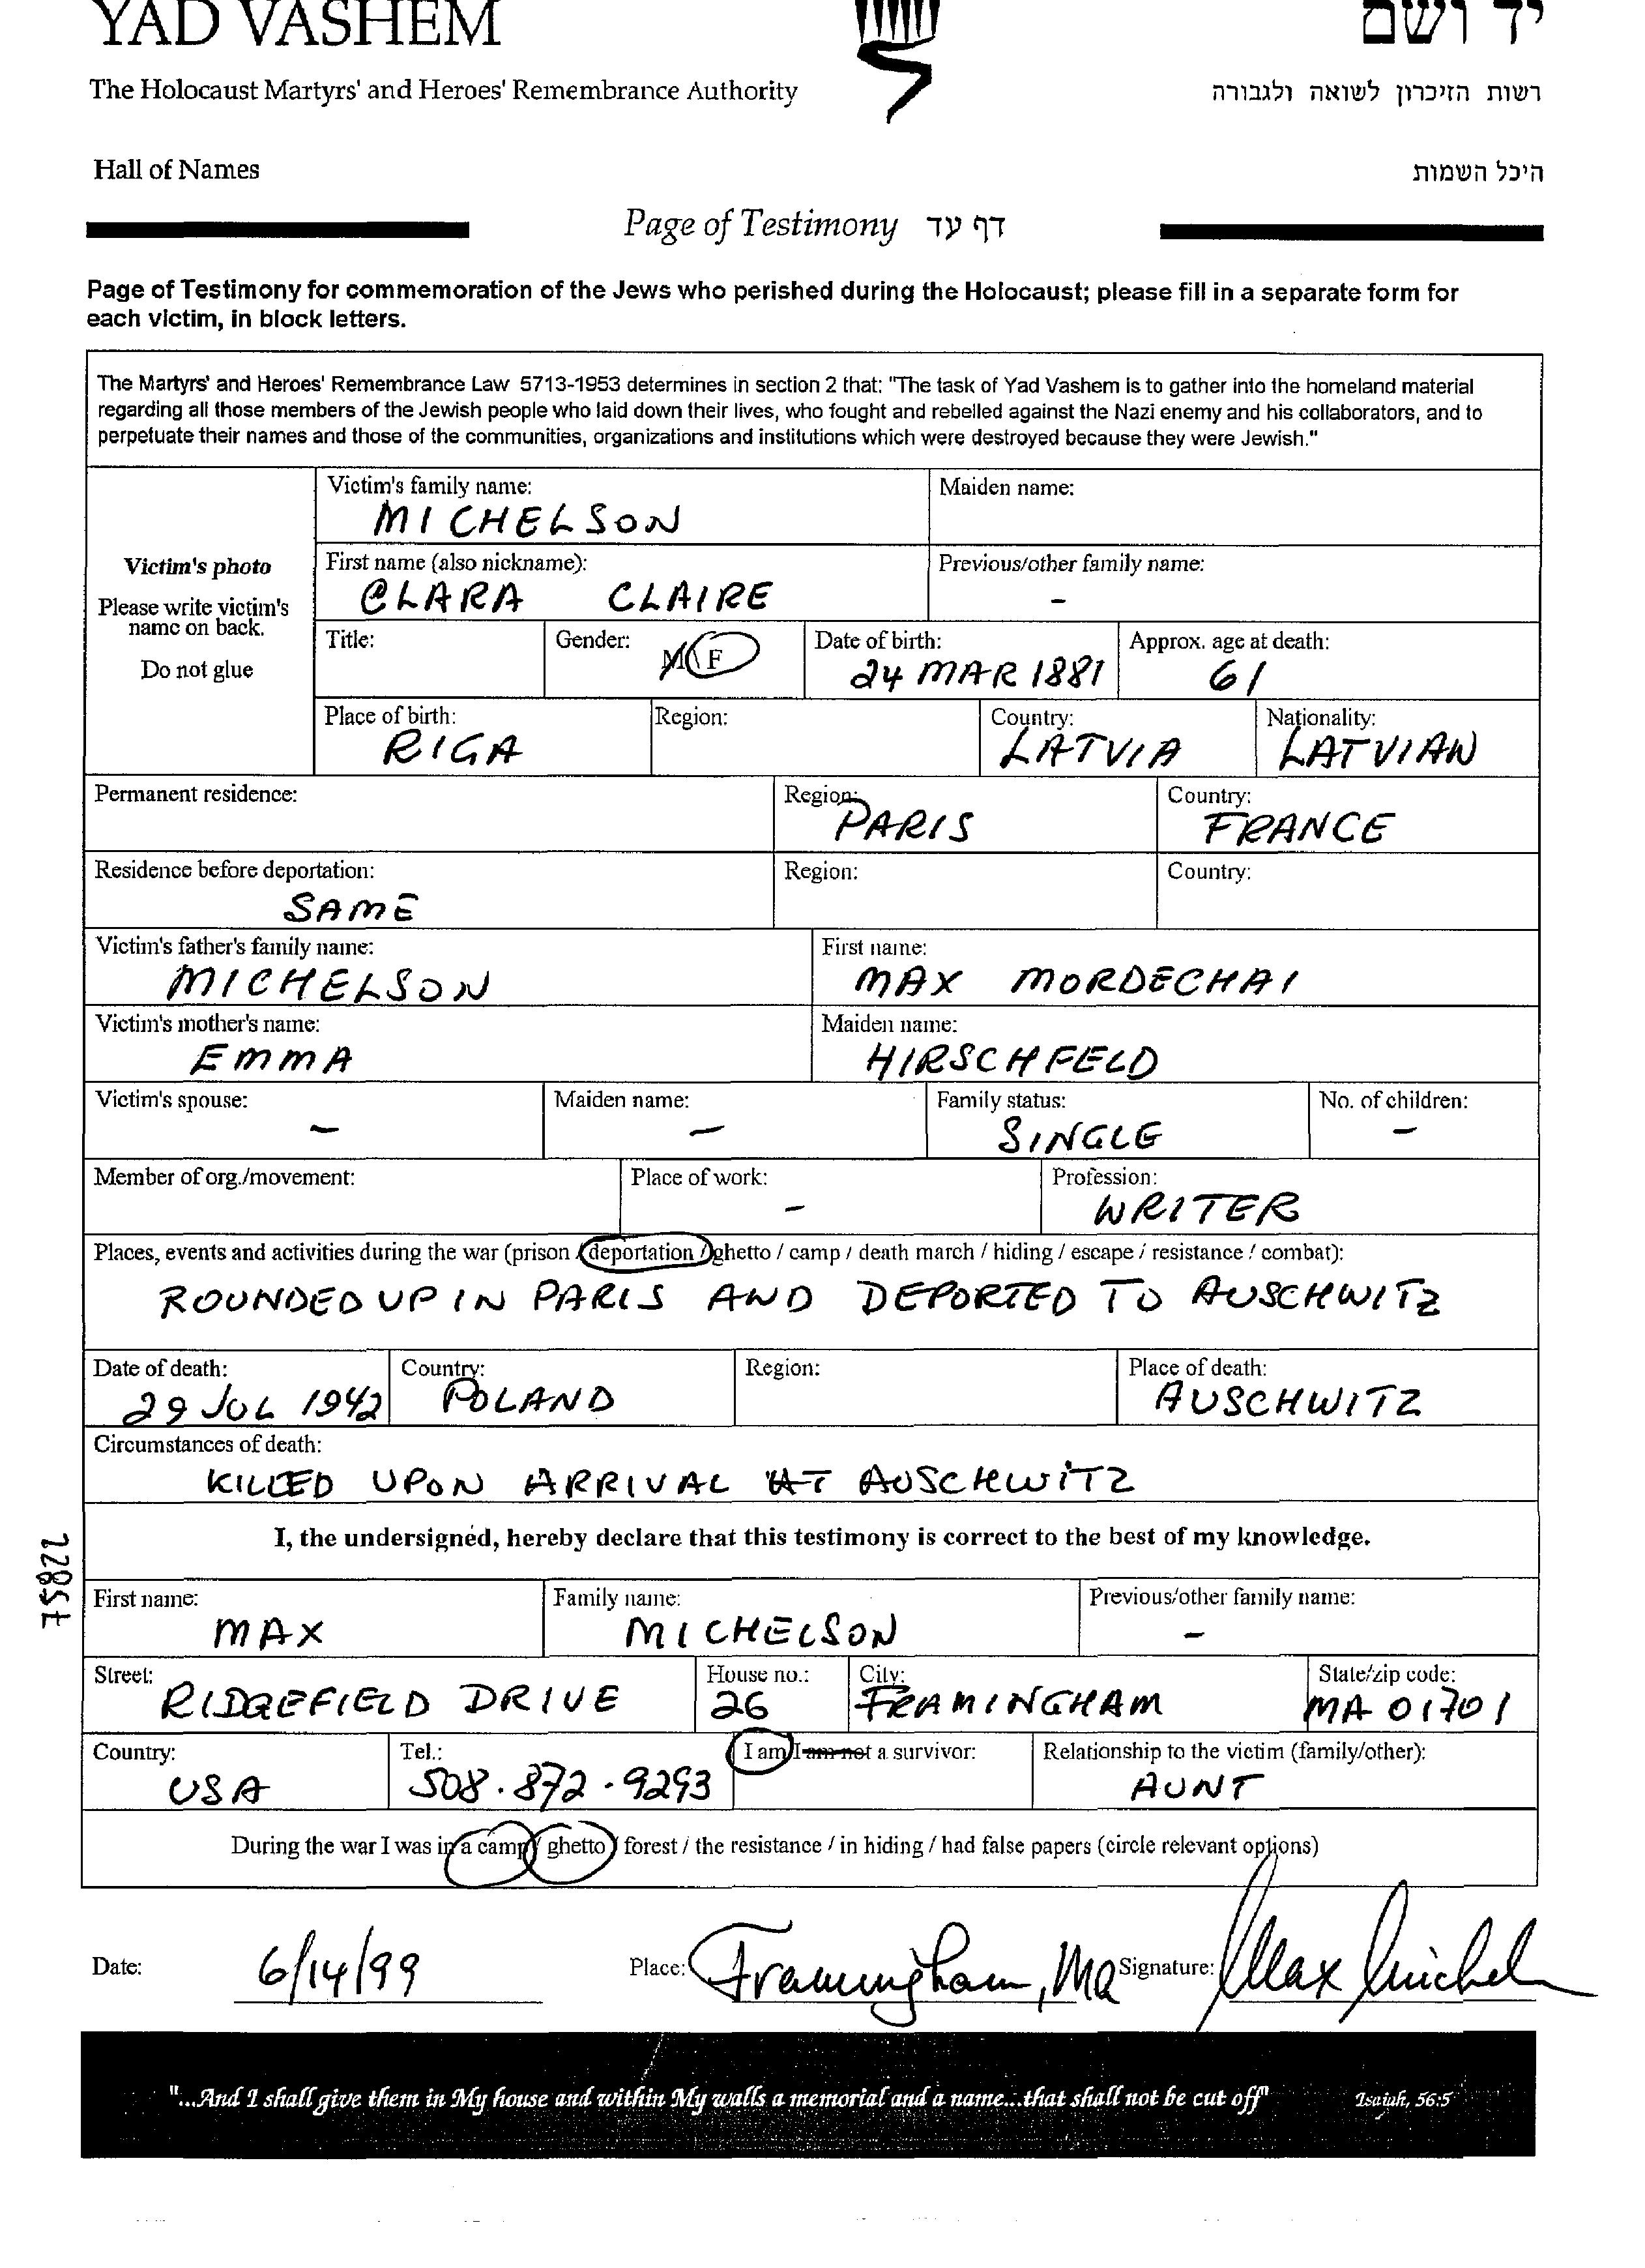 YAD VASHEM יד ושם
The Holocaust Martyrs' and Heroes' Remembrance Authority רשות הזיכרון לשואה ולגבורה
Hall of Names היכל השמות
Page of Testimony דף עד
Page of Testimony for commemoration of the Jews who perished during the Holocaust; please fill in a separate form for
each victim, in block letters.
The Martyrs' and Heroes' Remembrance Law 5713-1953 determines in section 2 that: "The task of Yad Vashem is to gather into the homeland material
regarding all those members of the Jewish people who laid down their lives, who fought and rebelled against the Nazi enemy and his collaborators, and to
perpetuate their names and those of the communities, organizations and institutions which were destroyed because they were Jewish."
Victim's photo
Please write victim's
name on back.
Do not glue
Victim's family name: Maiden name:
MICHELSON
First name (also nickname): Previous/other family name:
CLARA CLAIRE -
Title: Gender: M F Date of birth: Approx. age at death:
24 MAR 1881 61
Place of birth: Region: Country: Nationality:
RIGA LATVIA LATVIAN
Permanent residence: Region: Country:
PARIS FRANCE
Residence before deportation: Region: Country:
SAME
Victim's father's family name: First name:
MICHELSON MAX MORDECHAI
Victim's mother's name: Maiden name:
EMMA HIRSCHFELD
Victim's spouse: Maiden name: Family status: No. of children:
- - SINGLE -
Member of org./movement: Place of work: Profession:
- WRITER
Places, events and activities during the war (prison / deportation / ghetto / camp / death march / hiding / escape / resistance / combat):
ROUNDED UP IN PARIS AND DEPORTED TO AUSCHWITZ
Date of death: Country: Region: Place of death:
29 JUL 1942 POLAND AUSCHWITZ
Circumstances of death:
KILLED UPON ARRIVAL AT AUSCHWITZ
I, the undersigned, hereby declare that this testimony is correct to the best of my knowledge.
First name: Family name: Previous/other family name:
MAX MICHELSON -
Street: House no.: City: State/zip code:
RIDGEFIELD DRIVE 26 FRAMINGHAM MA 01701
Country: Tel.: I am/I am not a survivor: Relationship to the victim (family/other):
USA 508.872.9293 AUNT
During the war I was in a camp / ghetto / forest / the resistance / in hiding / had false papers (circle relevant options)
Date: 6/14/99 Place: Framingham, Ma Signature: Max Michel
"...And I shall give them in My house and within My walls a memorial and a name...that shall not be cut off" Isaiah, 56:5